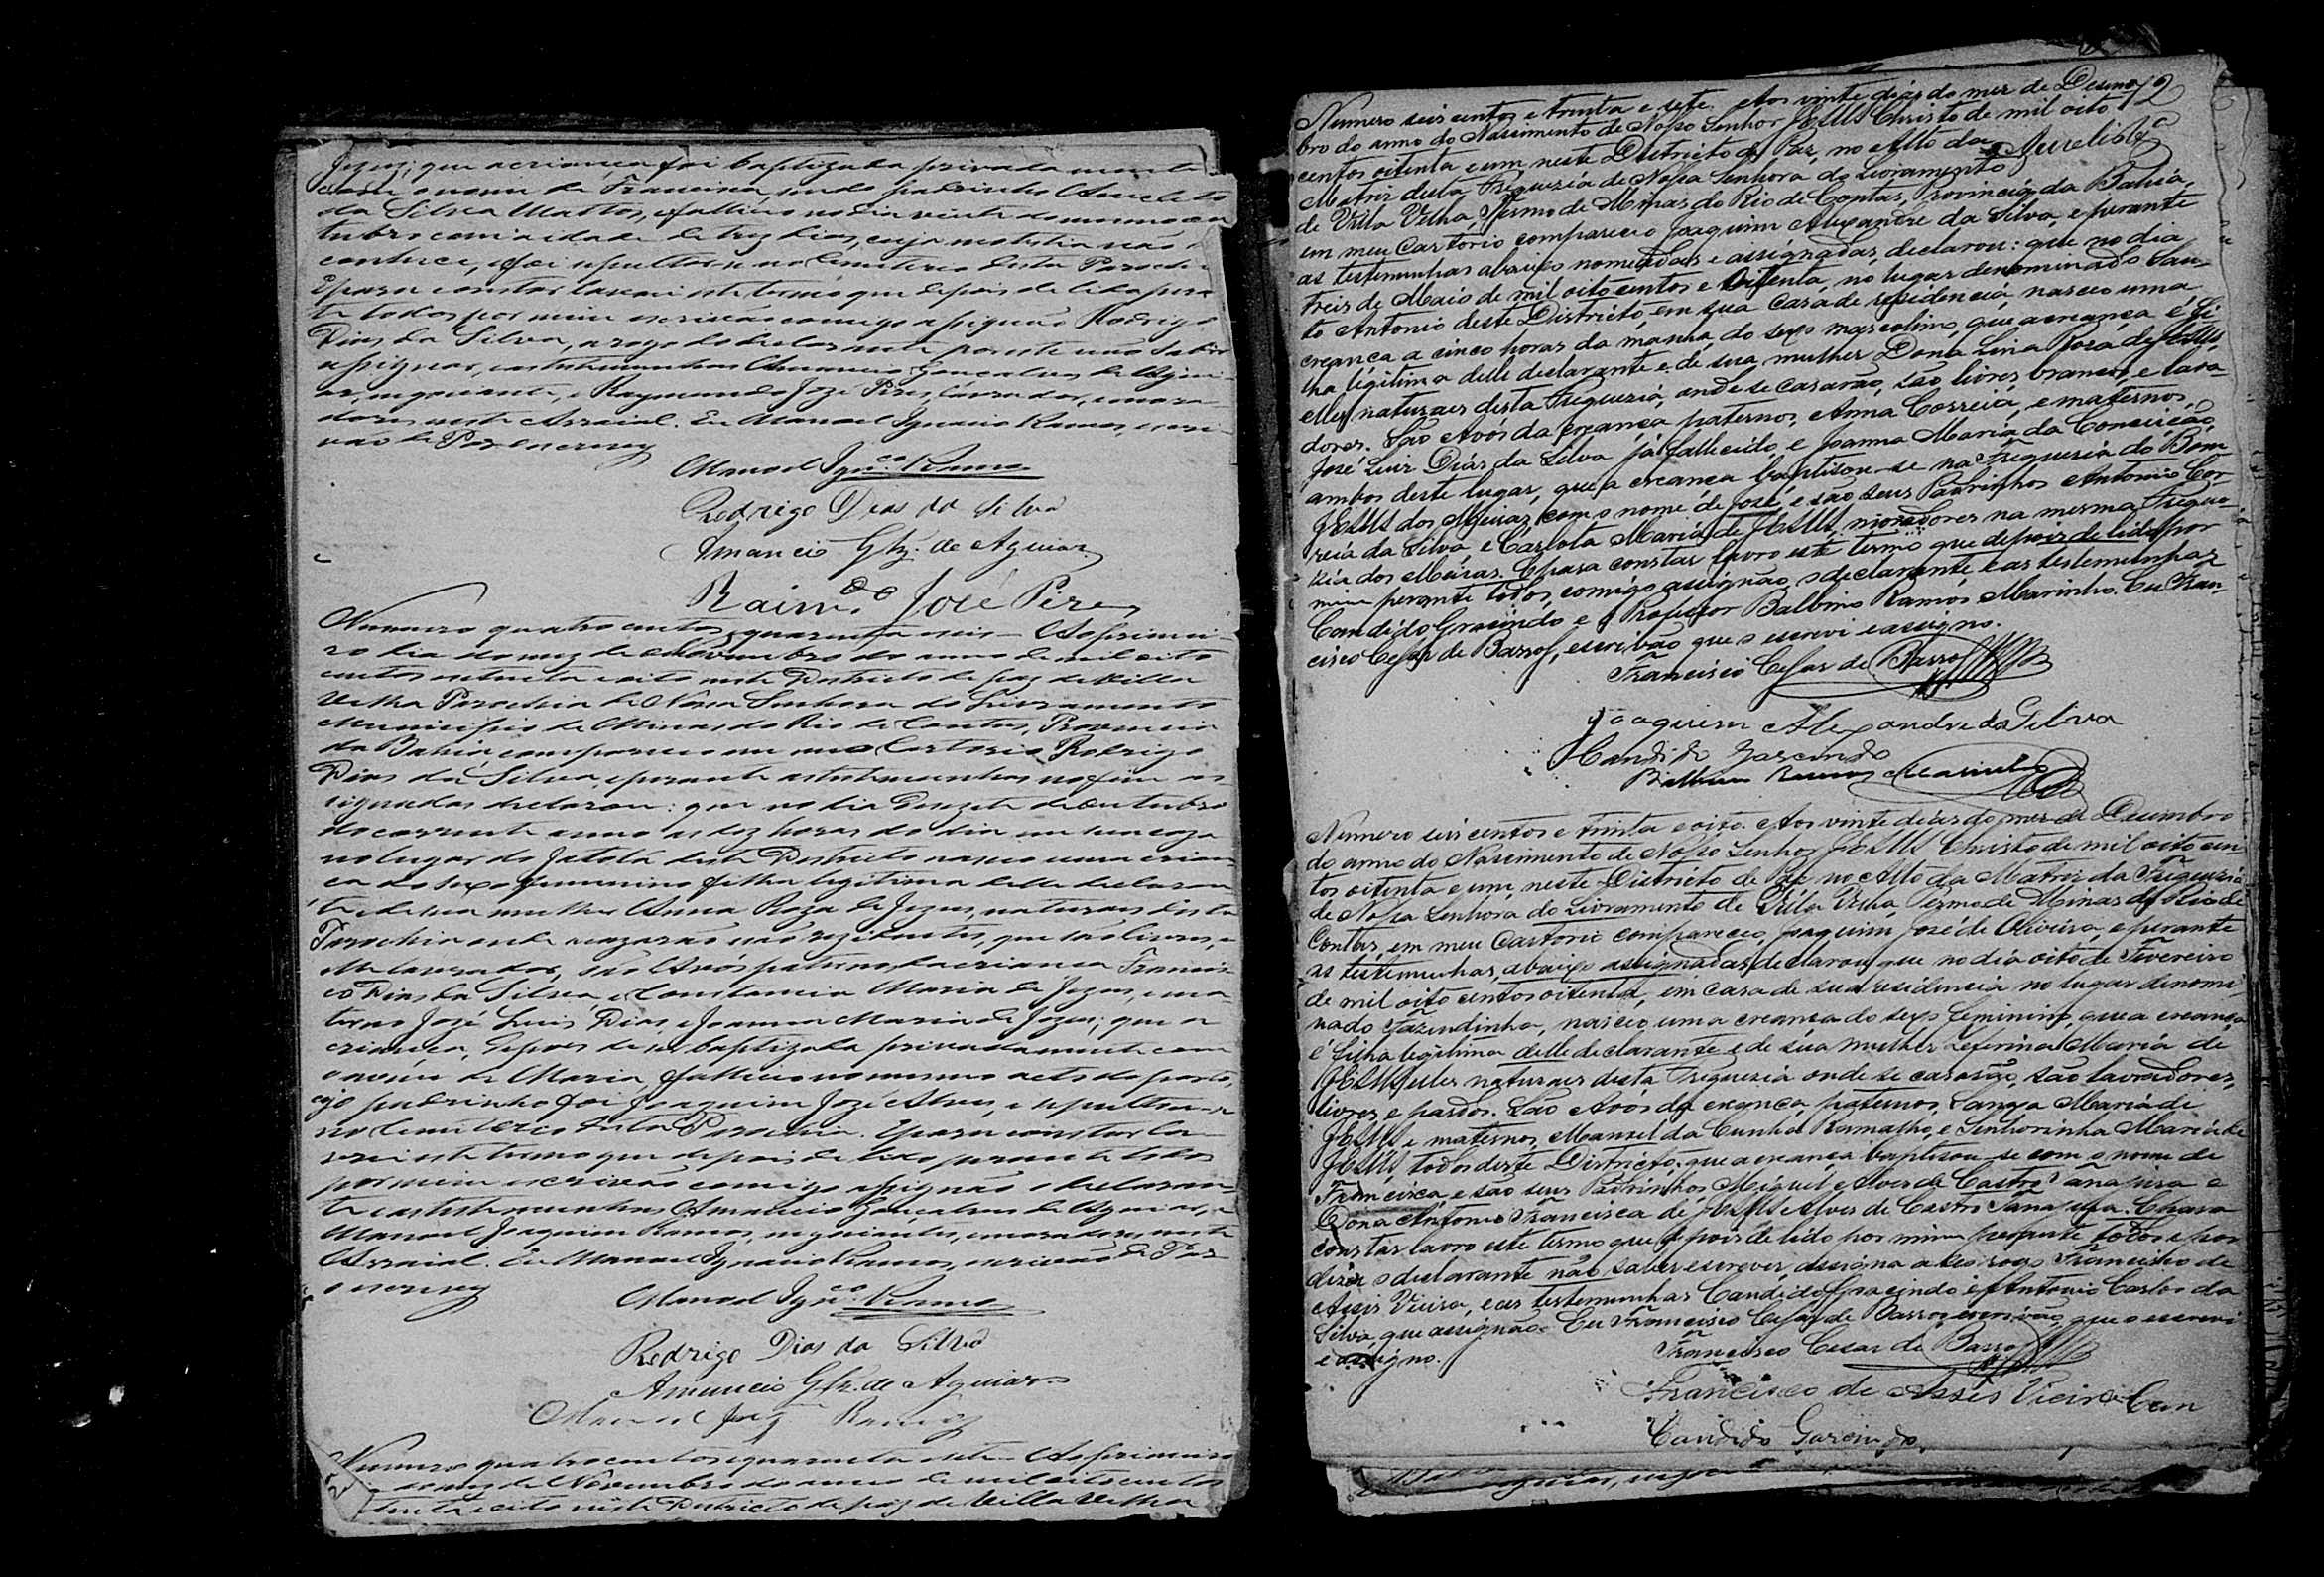 Jezus; que a criança foi baptizada privadamente
com o nome de Francisca, sendo padrinho Anacleto
da Silva Mattos, e falleceo no dia vinte do mesmo ou
tubro com a idade de trez dias, cuja molestia não
conhece, e foi sepultar-se no Cemiterio desta Parochia
E para constar lavrei este termo que depois de lido peran
te todos por mim escrivão comigo assignão Rodrigo
Dias da Silva, a rogo do declarante por este não saber
assignar, e as testemunhas Amancio Gonçalves de Agui
ar, negociante, e Raymundo Joze Pires, lavrador, mora
dores neste Arraial. Eu Manoel Ignacio Ramos, escri
vão de Paz escrevy
Manoel Ignco Ramos
Rodrigo Dias da Silva
Amancio Glz. de Aguiar
Raimdo José Pires
Numero quatro centos quarenta e seis – Ao primei
ro dia do mez de Novembro do anno de mil oito
centos setenta e oito neste Districto de paz de Villa
Velha Parochia de Nossa Senhora do Livramento
Municipio de Minas do Rio de Contas, Provincia
da Bahia, compareceo em meu Cartorio Rodrigo
Dias da Silva, e perante as testemunhas no fim as
signadas declarou: que no dia Dezsete de Outubro
do corrente anno as dez horas do dia em sua caza
no lugar do Jatobá deste Districto nasceo uma crian
ça do sexo femenino filha legitima delle declaran
te e de sua mulher Anna Roza de Jezus, naturaes desta
Parochia onde se cazarão e são rezidentes, que são livres, e
elle lavrador, são Avós paternos da criança Francis
co Dias da Silva e Constancia Maria de Jezus, e ma
ternos José Luis Dias e Joanna Maria de Jezus; que a
criança, depois de ser baptizada privadamente com
o nome de Maria falleceo no mesmo acto do parto,
cujo padrinho foi Joaquim Jozé Alves, e sepultou-se
no Cemiterio desta Parochia. E para constar la
vrei este termo que depois de lido perante todos
por mim escrivão comigo assignão o declaran
te e as testemunhas Amancio Gonçalves de Aguiar, e
Manoel Joaquim Ramos, negociantes, e moradores neste
Arraial. Eu Manoel Ignacio Ramos, escrivão de Paz
o escrevy
Manoel Ignco Ramos
Rodrigo Dias da Silva
Amancio Glz. de Aguiar
Manoel Joaq Ramos
Numero quatro centos e quarenta e sete – Ao primeiro
do mez de Novembro do anno de mil oito centos
setenta e oito neste Districto de paz de Villa Velha
2
Numero seis centos e trinta e sete. Aos vinte dias do mez de Dezem
bro do anno do Nascimento de Nosso Senhor JESUS Christo de mil oito
centos oitenta e um, neste Districto de Paz, no Alto da
Matriz desta Freguezia de Nossa Senhora do Livramento
de Villa Velha, Termo de Minas do Rio de Contas, Provincia da Bahia,
em meu Cartorio compareceo Joaquim Alexandre da Silva, e perante
as testemunhas abaixo nomeadas e assignadas, declarou: que no dia
treis de Maio de mil oito centos e oitenta, no lugar denominado San
to Antonio deste Districto, em sua casa de residencia, nasceo uma
creança a cinco horas da manhã, do sexo masculino, que a creança é fi
lha legitima delle declarante e de sua mulher Dona Lina Rosa de JESUS,
elles naturaes desta Freguezia, onde se casarão, são livres, brancos, e lavra
dores. São Avós da creança paternos, Anna Correia, e maternos,
José Luis Dias da Silva já fallecido, e Joanna Maria da Conceição,
ambos deste lugar, que a creança baptisou-se na Freguezia do Bom
JESUS dos Meiras, com o nome de José, e são seus Padrinhos Antonio Cor
reia da Silva e Carlota Maria de JESUS, moradores na mesma Fregue
zia dos Meiras. E para constar lavro este termo que depois de lido por
mim perante todos, comigo assignão, o declarante e as testemunhas
Candido Gracindo e o Professor Balbino Ramos Marinho. Eu Fran
cisco Cesar de Barros, escrivão que o escrevi e assigno.
Francisco Cesar de Barros
Joaquim Alexandre da Silva
Candido Garcindo
Balbino Ramos Marinho
Numero seis centos e trinta e oito. Aos vinte dias do mez de Dezembro
do anno do Nascimento de Nosso Senhor JESUS Christo de mil oito cen
tos oitenta e um, neste Districto de Paz no Alto da Matriz da Freguezia
de Nossa Senhora do Livramento de Villa Velha, Termo de Minas do Rio de
Contas, em meu Cartorio compareceo, Joaquim José de Oliveira, e perante
as testemunhas, abaixo assignadas, declarou que no dia oito de Fevereiro
de mil oito centos oitenta, em casa de sua residencia no lugar denomi
nado Fazendinha, nasceo, uma creança do sexo feminino, que a creança
é filha legitima delle declarante e de sua mulher Zeferina Maria de
JESUS, elles naturaes desta Freguezia onde se casarão, são lavradores,
livres, e pardos. São Avós da creança, paternos, Maria de
JESUS e maternos, Manoel da Cunha Ramalho, e Senhorinha Maria de
JESUS, todos deste Districto; que a creança baptisou-se com o nome de
Francisca, e são seus Padrinhos, Miguel Alves de Castro Tanajura e
Dona Antonia Francisca de JESUS Alves de Castro Tanajura. E para
constar lavro este termo que depois de lido por mim perante todos e por
dizer o declarante não saber escrever, assigna a seo rogo Francisco de
Assis Vieira, e as testemunhas Candido Gracindo e Antonio Carlos da
Silva, que assignão. Eu Francisco Cesar de Barros escrivão, que o escrevi
e assigno.
Francisco Cesar de Barros
Francisco de Assis Vieira
Candido Garcindo